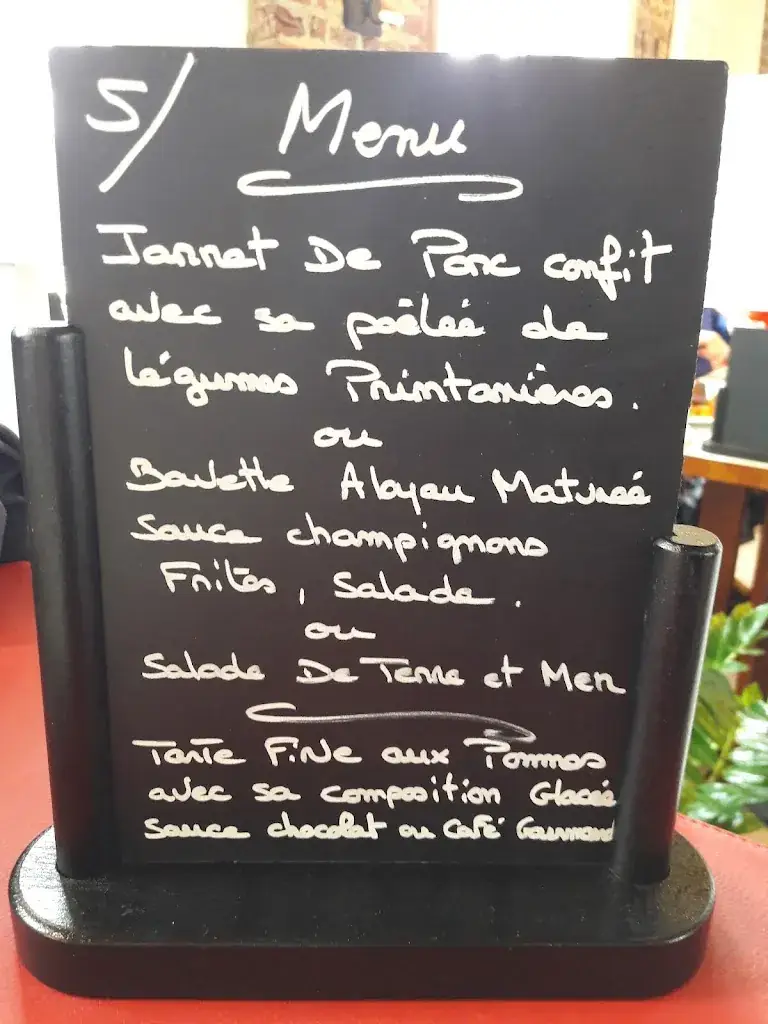 5/ Menu
Jarret De Porc confit
avec sa poêlée de
légumes Printanières.
ou
Bavette Aloyau Maturée
Sauce champignons
Frites, Salade.
ou
Salade De Terre et Mer
Tarte Fine aux Pommes
avec sa composition Glacée
Sauce chocolat ou Café Gourmand